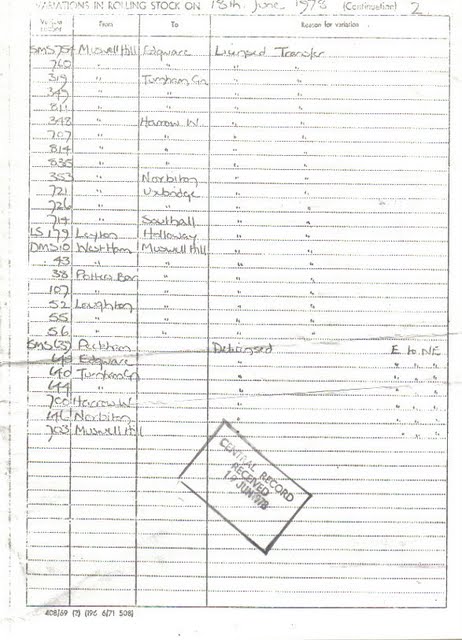 VARIATIONS IN ROLLING STOCK ON 18th. June 1978 (Continuation) 2
Vehicle number From To Reason for variation
SMS 754 Muswell Hill Edgware Licensed Transfer
760 " " " "
319 " Turnham Gn " "
347 " " " "
811 " " " "
348 " Harrow W. " "
707 " " " "
814 " " " "
835 " " " "
353 " Norbiton " "
721 " Uxbridge " "
726 " " " "
714 " Southall " "
LS 179 Leyton Holloway " "
DMS 10 West Ham Muswell Hill " "
43 " " " "
38 Potters Bar " " "
107 " " " "
52 Loughton " " "
55 " " " "
56 " " " "
SMS Peckham Delicensed E to NE
Edgware " " "
640 Turnham Gn " " " "
644 " " " " "
700 Harrow W " " " "
646 Norbiton " " " "
703 Muswell Hill " " " "
CENTRAL RECORD
RECEIVED
19 JUN 1978
408/69 (7) (196 6/71 508)